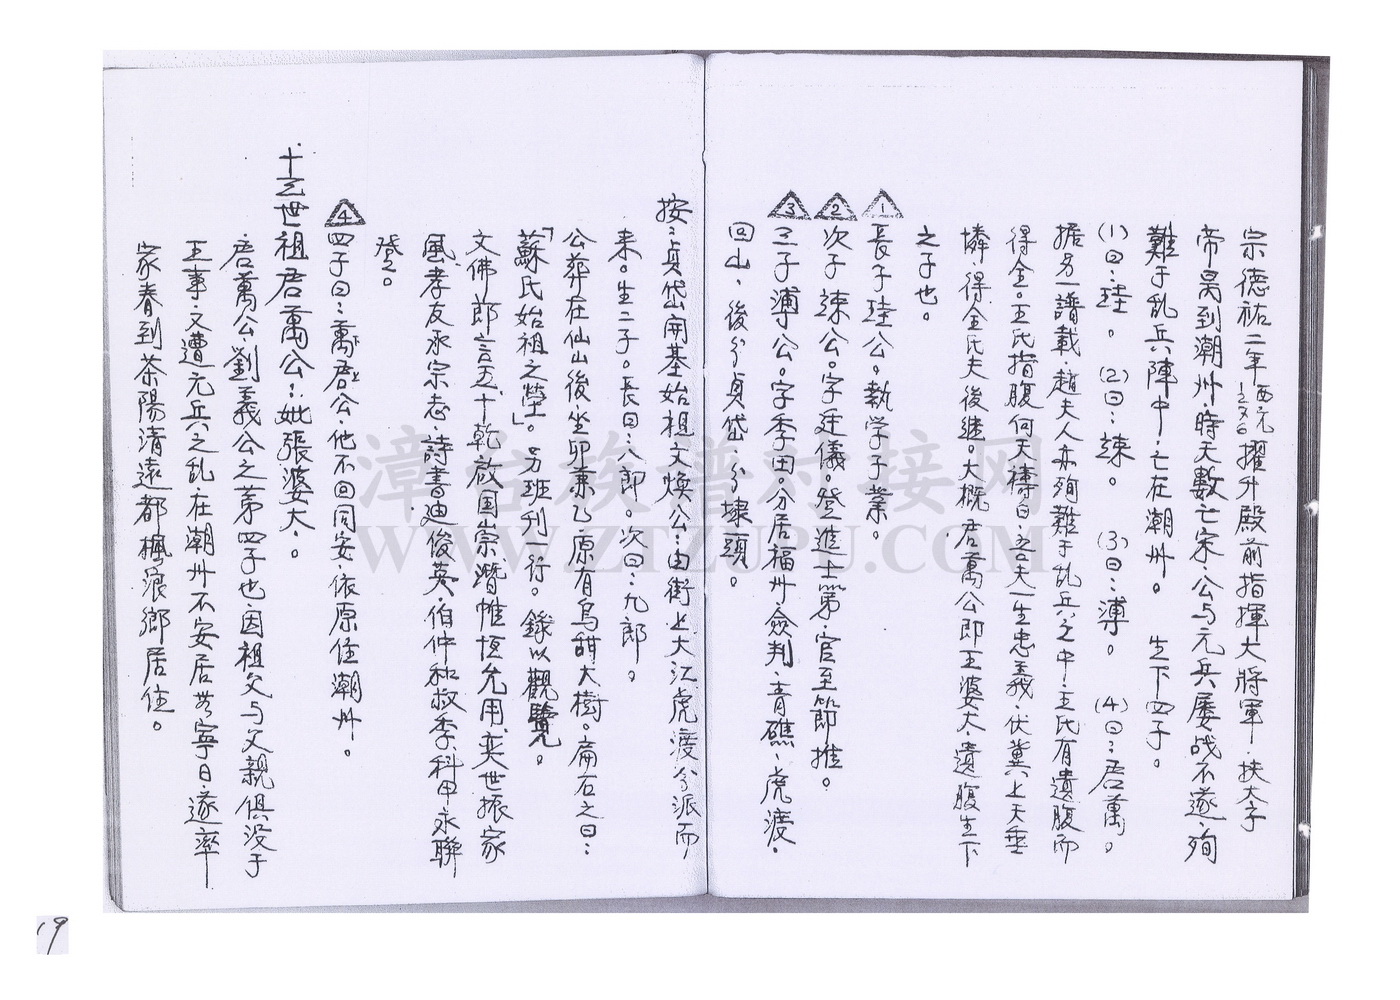 宗德祐二年西元一二七六擢升殿前指揮大將軍．扶太子
帝昺到潮州時天數亡宋．公与元兵屡战不遂．殉
難于乱兵陣中．亡在潮州。 生下四子。
(1)曰：珪。 (2)曰：竦。 (3)曰：溥。 (4)曰：君萬。
據另一譜載．趙夫人亦殉難于乱兵之中．王氏有遺腹而
得全。王氏指腹向天禱曰．吾夫一生忠義．伏冀上天垂
憐．得全氏夫後继。大概君萬公即王婆大．遺腹生下
之子也。
△1 長子珪公．執学子業。
△2 次子竦公。字廷儀．登進士第．官至節推。
△3 三子溥公。字季田。分居福州．僉判．青礁、虎渡、
回山、後分貞岱．分埭頭。
按：貞岱開基始祖文煥公：由街上大江虎渡分派而
来。生二子。長曰：八郎。次曰：九郎。
公葬在仙山後．坐卯兼乙．原有烏甜大樹。扁石之曰：
「蘇氏始祖之塋」。另班列行。錄以觀覽。
文佛郎言五十 乾啟国崇潛惟恆允用。奕世振家
風．孝友承宗志．詩書迪俊英．伯仲和叔季．科甲永聯
登。
△4 四子曰：萬君公．他不回同安．依原住潮州。
十三世祖君萬公：妣張婆大．。
君萬公．劉義公之第四子也．因祖父与父親俱没于
王事．又遭元兵之乱．在潮州不安居無寧日．遂率
家眷到茶陽清遠都楓浪鄉居住。
漳台族谱对接网
WWW.ZTZUPU.COM
19